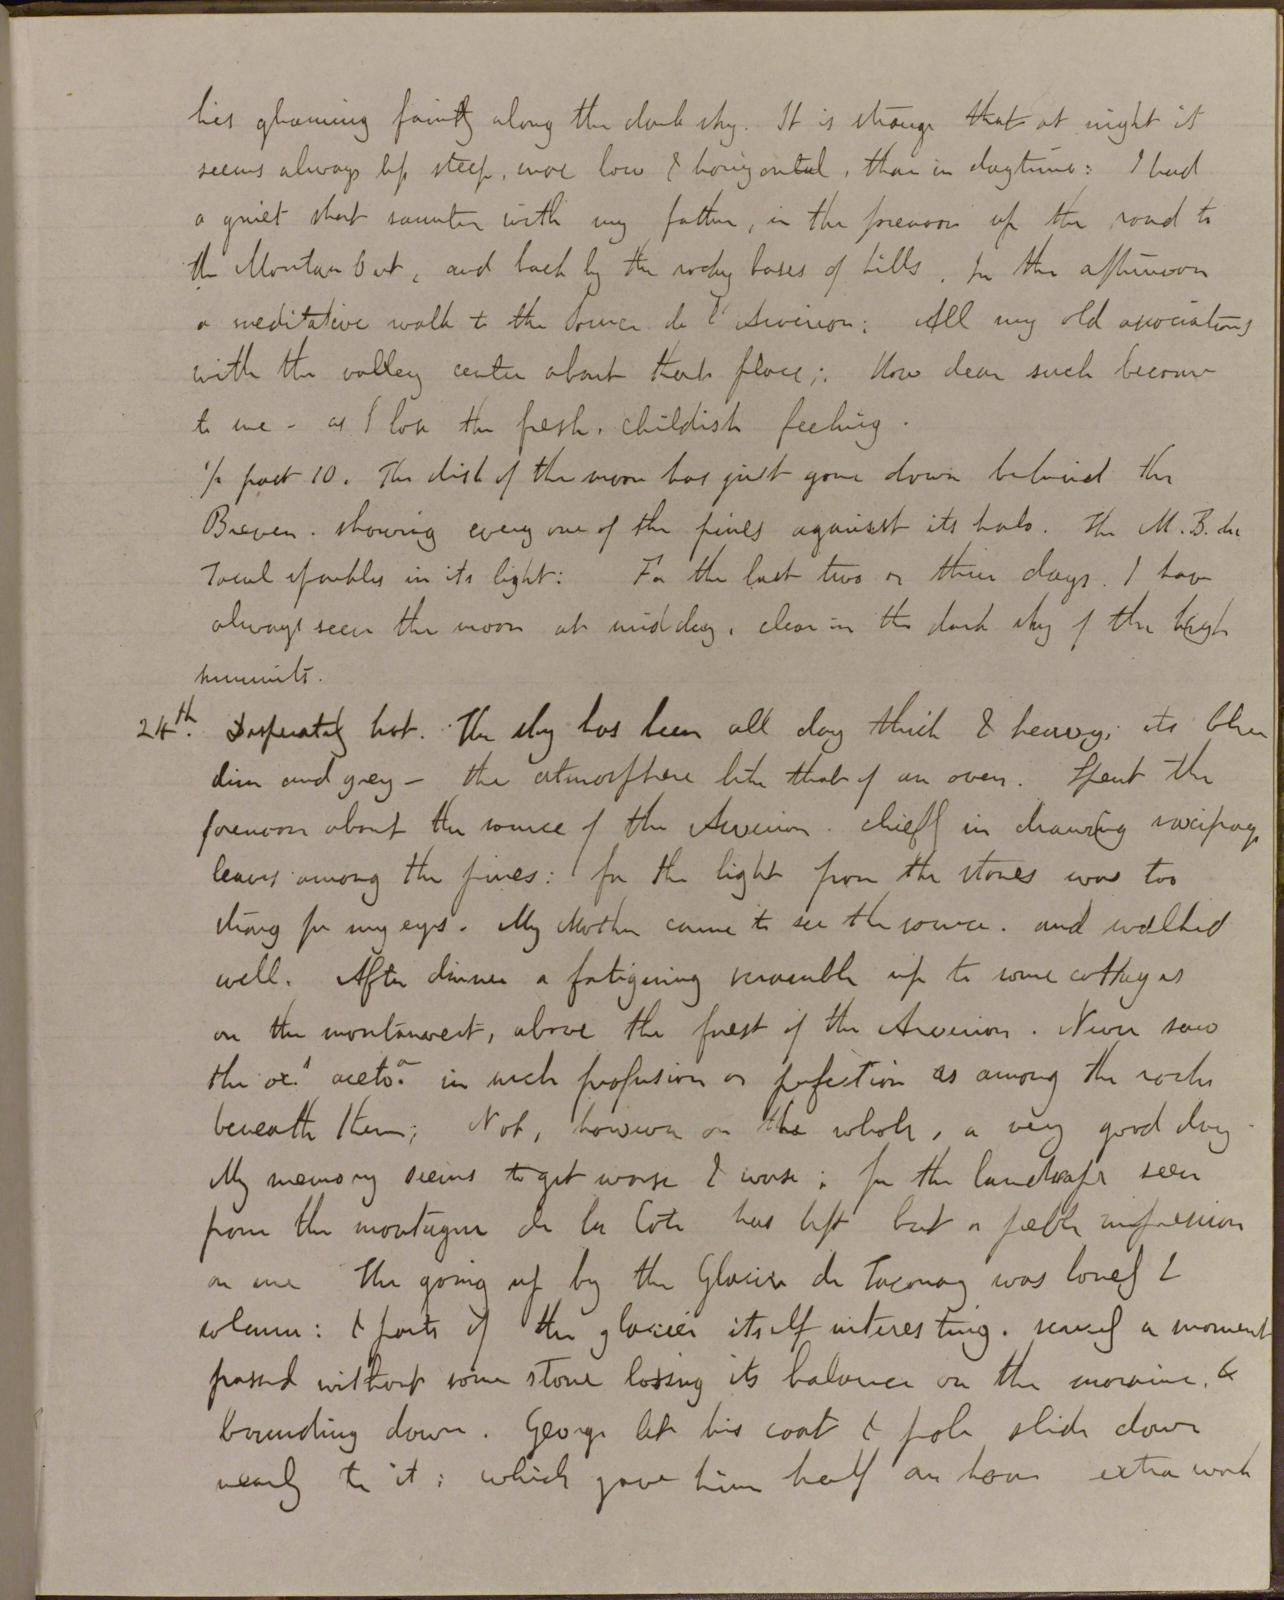 lies gleaming faintly along the dark sky. It is strange that at night it
seems always less steep, more low & horizontal, than in daytime: I had
a quiet short saunter with my father, in the forenoon up the road to
the Montanvert, and back by the rocky bases of hills. In the afternoon
a meditative walk to the Source de l'Arveiron; All my old associations
with the valley center about that place;. How dear such become
to me - as I lose the fresh, childish feeling.
1/2 past 10. The disk of the moon has just gone down behind the
Breven. showing every one of the pines against its halo. The M. B. du
Tacul sparkles in its light: For the last two or three days. I have
always seen the moon at midday, clear in the dark sky of the high
summits.
24th. Desperately hot. The sky has been all day thick & heavy; its blue
dim and grey - the atmosphere like that of an oven. Spent the
forenoon about the source of the Arveiron. chiefly in drawing saxifrage
leaves among the pines: for the light from the stones was too
strong for my eyes. My Mother came to see the source. and walked
well. After dinner a fatiguing scramble up to some cottages
on the montanvert, above the forest of the Arveiron. Never saw
the ox.s aceto.a in such profusion or perfection as among the rocks
beneath them; Not, however on the whole, a very good day.
My memory seems to get worse & worse; for the landscape seen
from the montagne de la Cote has left but a feeble impression
on me The going up by the Glacier de Taconay was lovely &
solemn: & parts of the glacier itself interesting. scarcely a moment
passed without some stone losing its balance on the moraine, &
bounding down. George let his coat & pole slide down
nearly to it; which gave him half an hour extra work